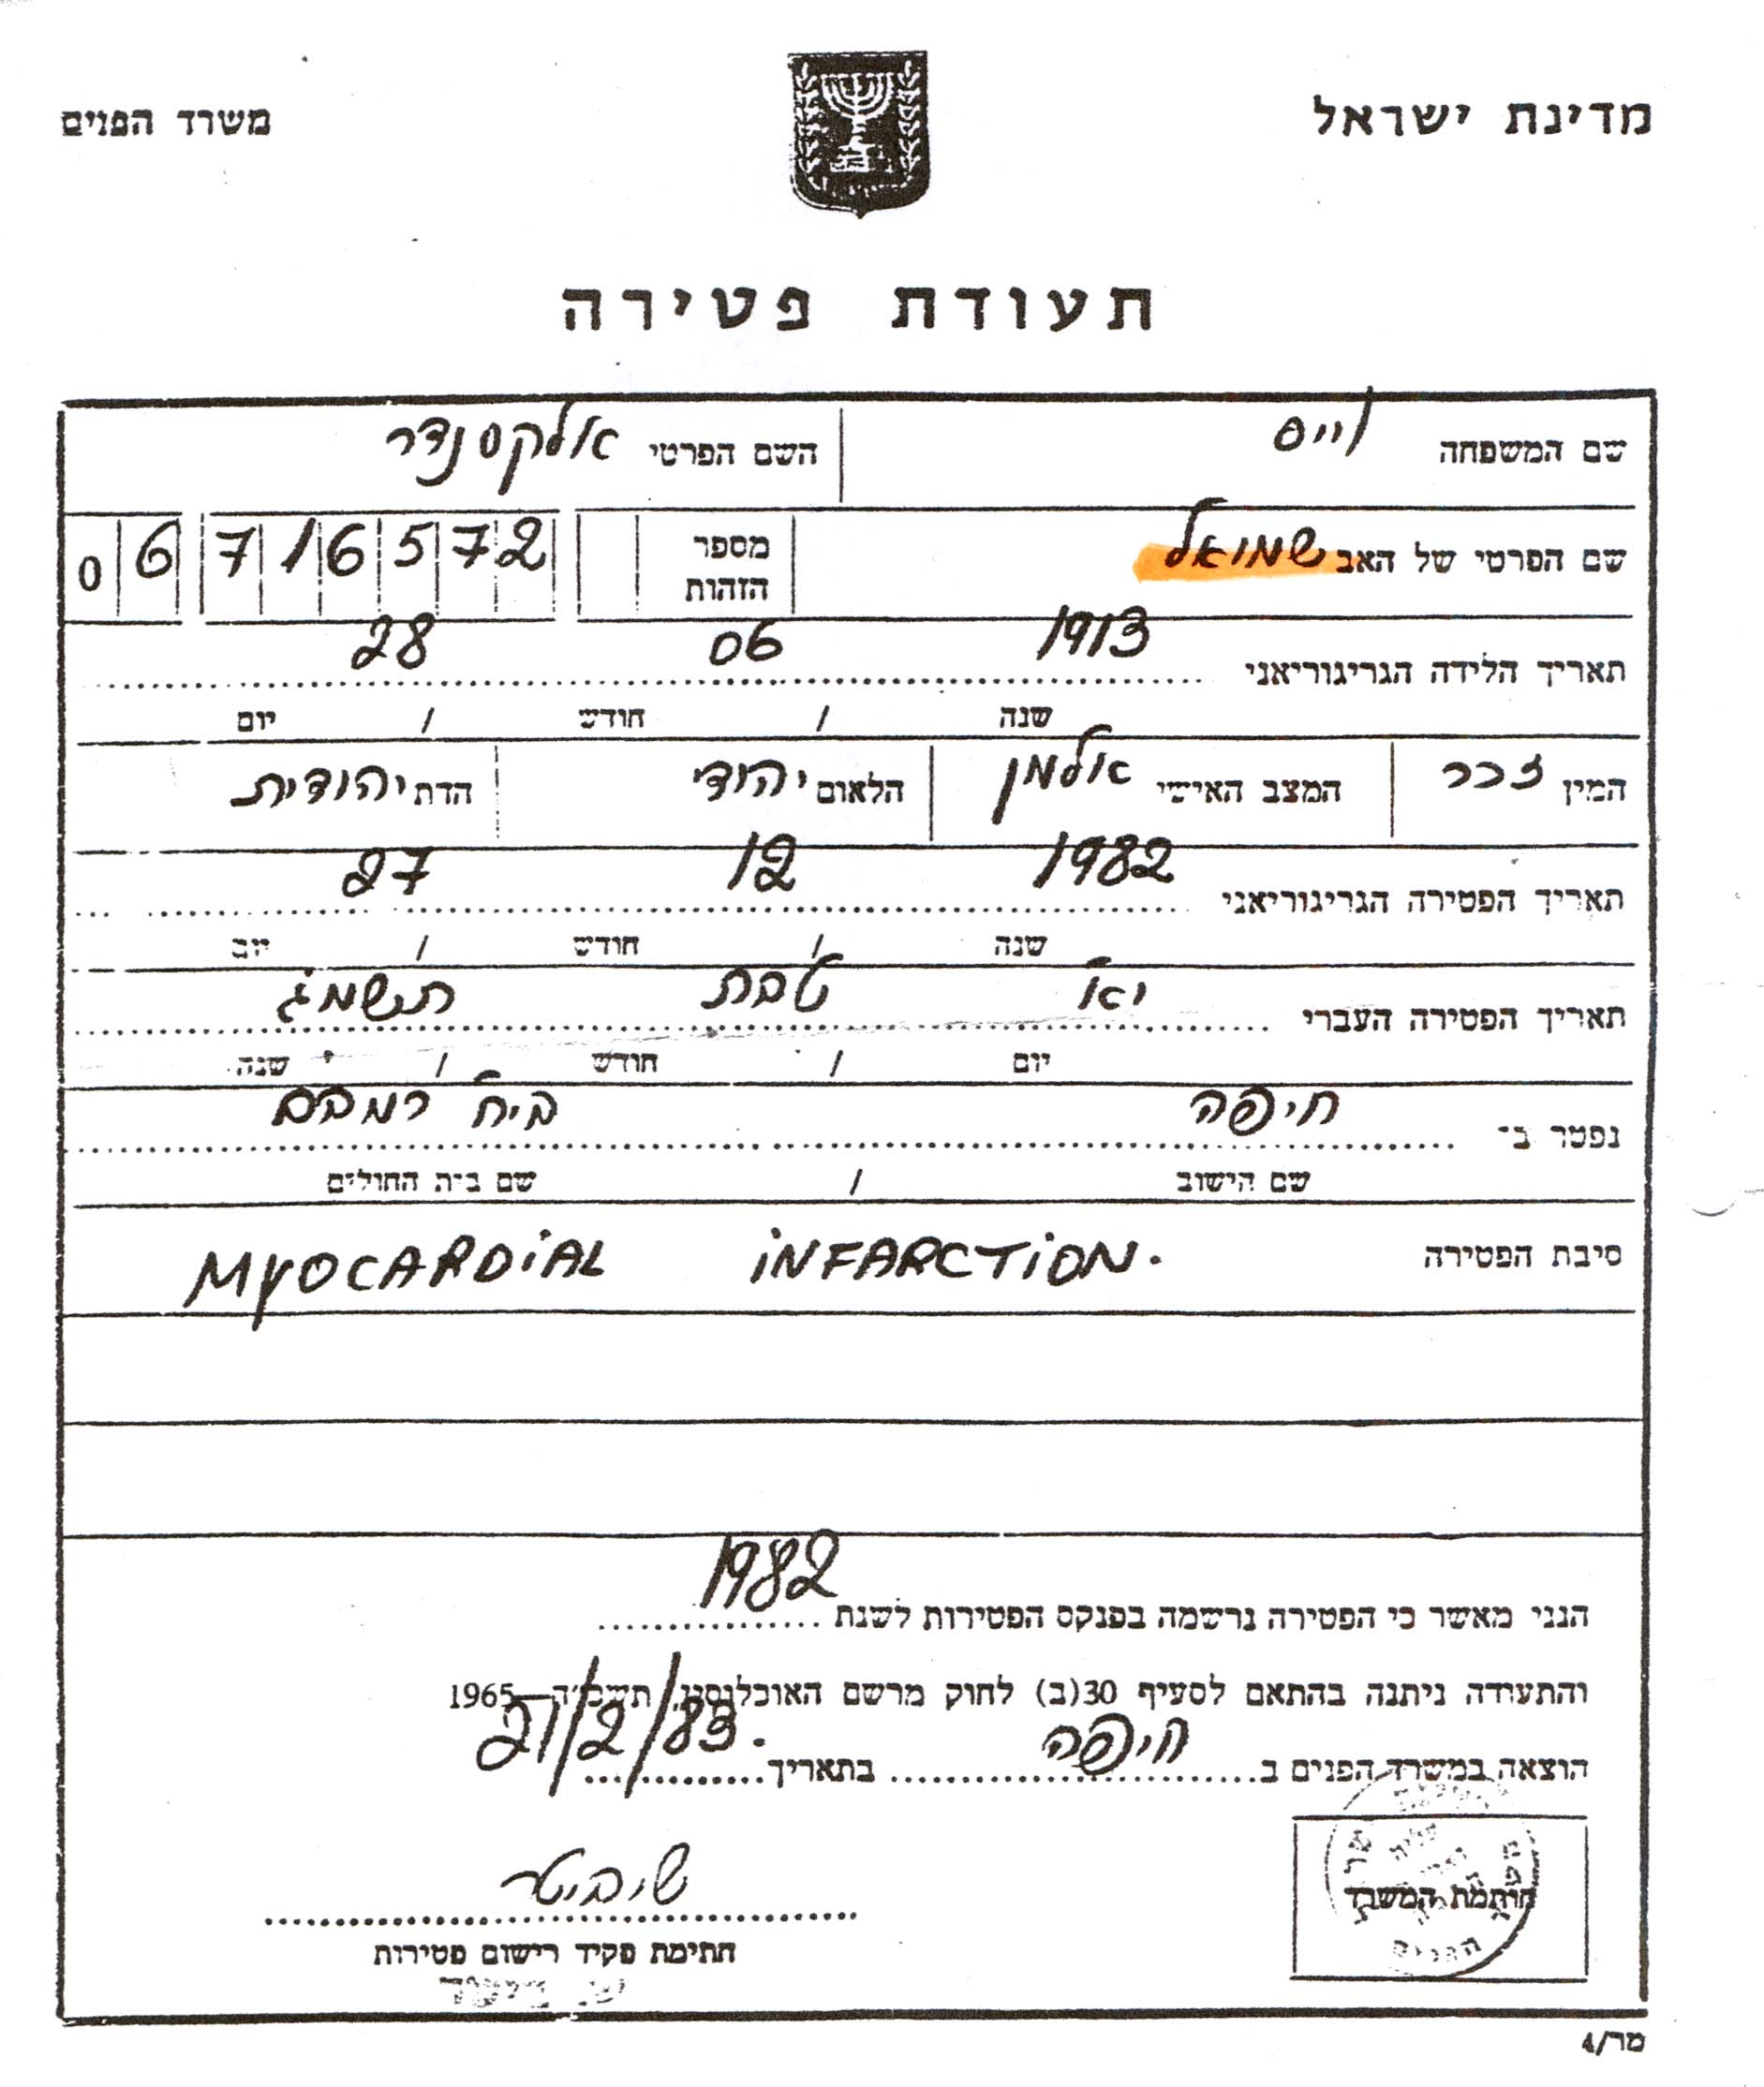 מדינת ישראל
משרד הפנים
תעודת פטירה
שם המשפחה וייס השם הפרטי אלכסנדר
שם הפרטי של האב שמואל מספר הזהות 0 6 7 1 6 5 7 2
1913 06 28
תאריך הלידה הגריגוריאני
שנה / חודש / יום
המין זכר המצב האישי אלמן הלאום יהודי הדת יהודית
1982 12 27
תאריך הפטירה הגריגוריאני
שנה / חודש / יום
תאריך הפטירה העברי יא טבת תשמ"ג
יום / חודש / שנה
נפטר ב־ חיפה ביח רמבם
שם הישוב / שם בית החולים
סיבת הפטירה MYOCARDIAL INFARCTION.
הנני מאשר כי הפטירה נרשמה בפנקס הפטירות לשנת 1982
והתעודה ניתנה בהתאם לסעיף 30(ב) לחוק מרשם האוכלוסין, תשכ״ה—1965
הוצאה במשרד הפנים ב חיפה בתאריך 21/2/83.
חותמת המשרד
חתימת פקיד רישום פטירות
מר/4